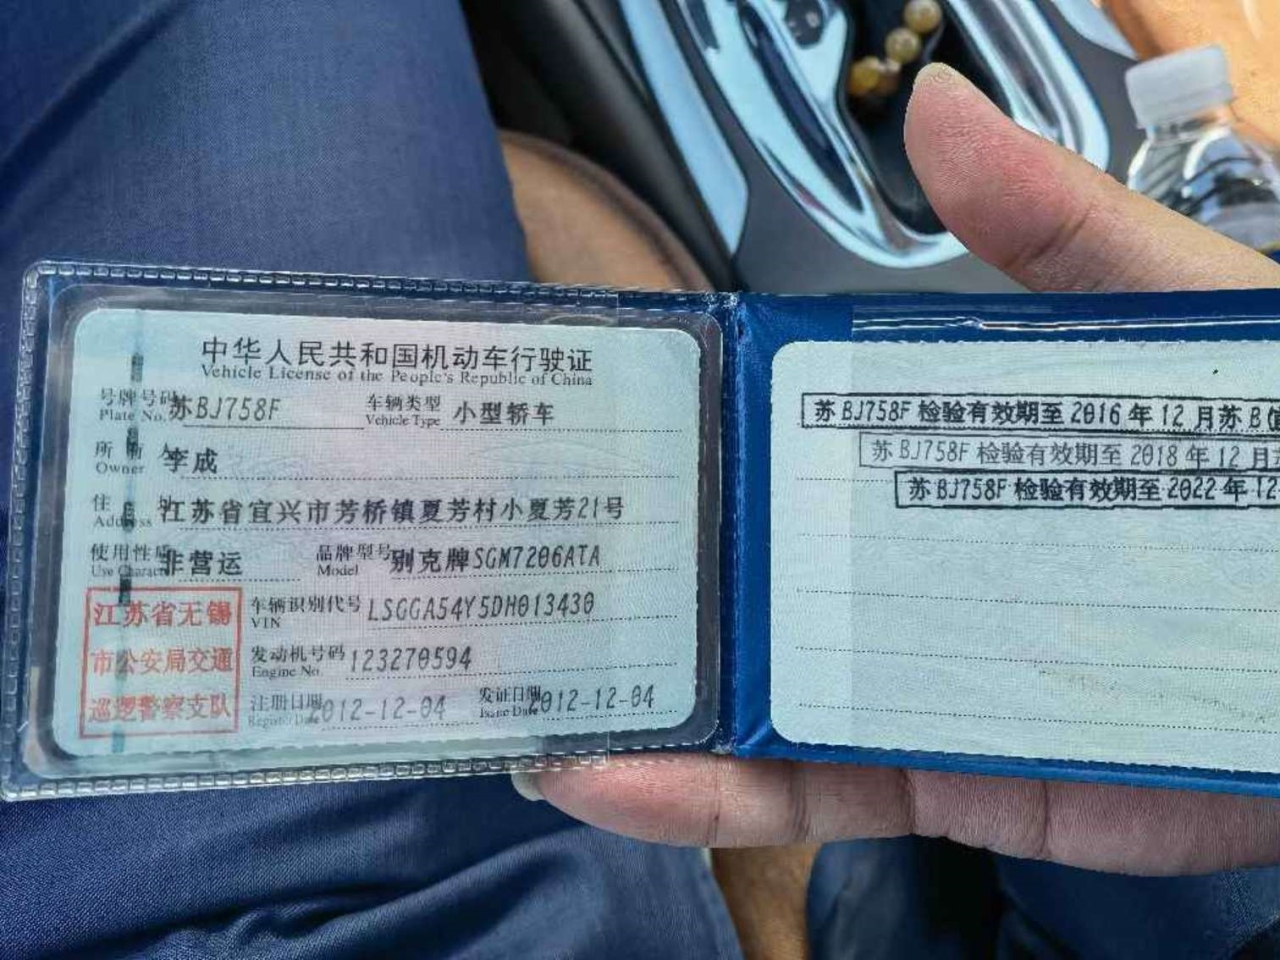 中华人民共和国机动车行驶证
Vehicle License of the People's Republic of China
号牌号码 苏BJ758F 车辆类型 小型轿车
Plate No. Vehicle Type
所有人 李成
Owner
住址 江苏省宜兴市芳桥镇夏芳村小夏芳21号
Address
使用性质 非营运 品牌型号 别克牌SGM7206ATA
Use Character Model
江苏省无锡
市公安局交通
巡逻警察支队
车辆识别代号 LSGGA54Y5DH013430
VIN
发动机号码 123270594
Engine No.
注册日期 2012-12-04 发证日期 2012-12-04
Register Date Issue Date
苏BJ758F 检验有效期至 2016 年 12 月苏 B
苏BJ758F 检验有效期至 2018 年 12 月
苏BJ758F 检验有效期至 2022 年 12